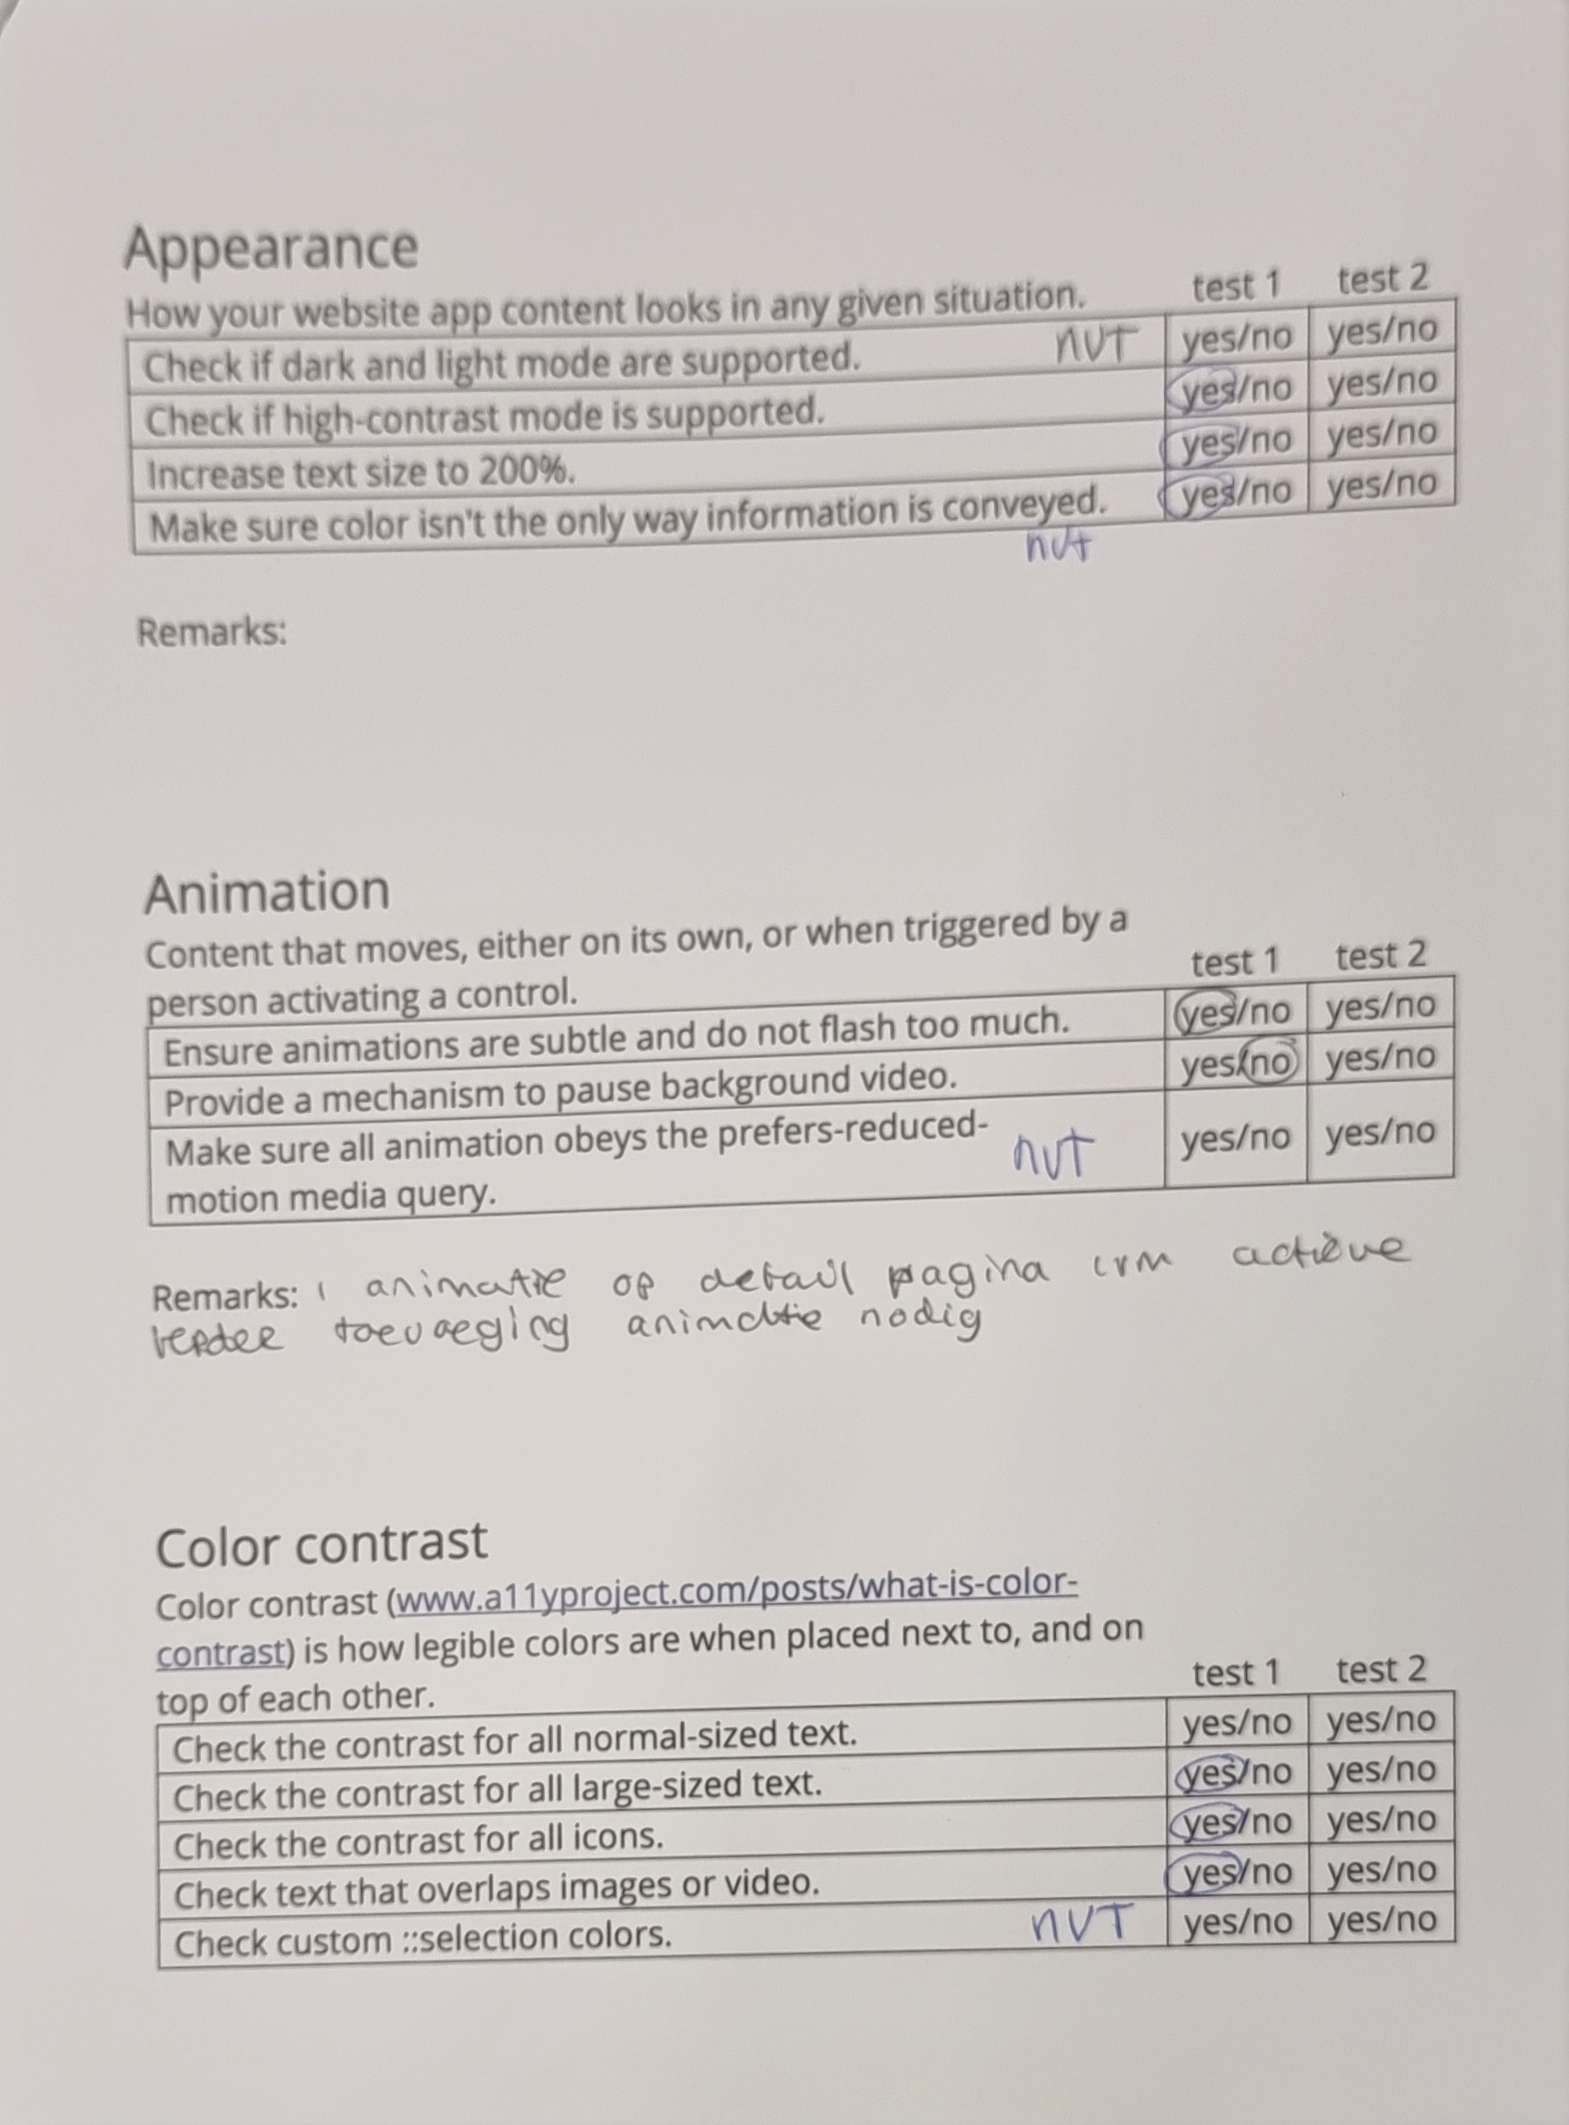 Appearance
How your website app content looks in any given situation. test 1 test 2
Check if dark and light mode are supported. nvt yes/no yes/no
Check if high-contrast mode is supported. yes/no yes/no
Increase text size to 200%. yes/no yes/no
Make sure color isn't the only way information is conveyed. yes/no yes/no
nvt
Remarks:
Animation
Content that moves, either on its own, or when triggered by a
person activating a control. test 1 test 2
Ensure animations are subtle and do not flash too much. yes/no yes/no
Provide a mechanism to pause background video. yes/no yes/no
Make sure all animation obeys the prefers-reduced-
motion media query. nvt yes/no yes/no
Remarks: 1 animatie op detail pagina
animatie nodig
Color contrast
Color contrast (www.a11yproject.com/posts/what-is-color-
contrast) is how legible colors are when placed next to, and on
top of each other. test 1 test 2
Check the contrast for all normal-sized text. yes/no yes/no
Check the contrast for all large-sized text. yes/no yes/no
Check the contrast for all icons. yes/no yes/no
Check text that overlaps images or video. yes/no yes/no
Check custom ::selection colors. NVT yes/no yes/no